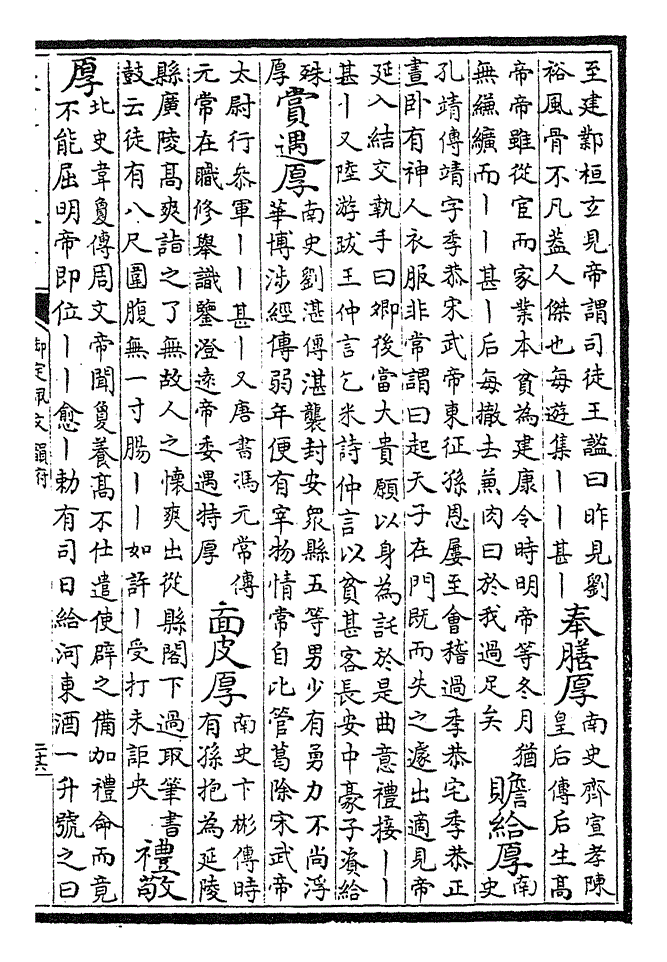 至建鄴桓玄見帝謂司徒王謐曰昨見劉
裕風骨不凡葢人傑也每遊集丨丨甚丨
奉膳厚
南史齊宣孝陳
皇后傳后生髙
帝帝雖從宦而家業本貧為建康令時明帝等冬月猶
無縑纊而丨丨甚丨后每撤去兼肉曰於我過足矣
贍給厚
南
史
孔靖傳靖字季恭宋武帝東征孫恩屢至會稽過季恭宅季恭正
晝卧有神人衣服非常謂曰起天子在門既而失之遽出適見帝
延入結交執手曰卿後當大貴願以身為託於是曲意禮接丨丨
甚丨又陸游跋王仲言乞米詩仲言以貧甚客長安中豪子資給
殊
厚
賞遇厚
南史劉湛傳湛襲封安眾縣五等男少有勇力不尚浮
華博涉經傳弱年便有宰物情常自比管葛除宋武帝
太尉行參軍丨丨甚丨又唐書馮元常傳
元常在職修舉識鑒澄遠帝委遇特厚
面皮厚
南史卞彬傳時
有孫抱為延陵
縣廣陵髙爽詣之了無故人之懷爽出從縣閣下過取筆書
鼓云徒有八尺圍腹無一寸腸丨丨如許丨受打未詎央
禮敬
厚
北史韋敻傳周文帝聞敻養髙不仕遣使辟之備加禮命而竟
不能屈明帝即位丨丨愈丨勅有司日給河東酒一升號之曰
御定佩文韻府